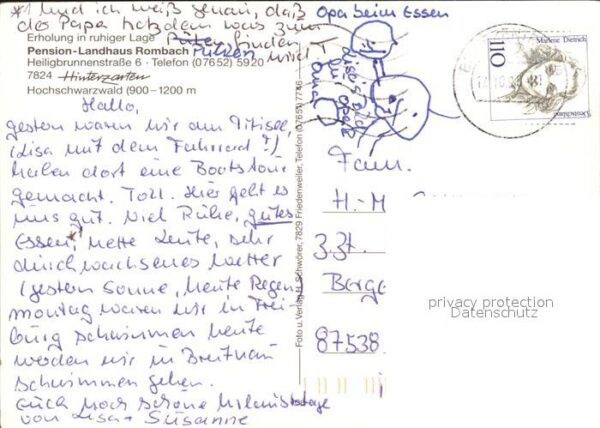 *) Und ich weiß genau, daß
der Papa trotzdem was zum
finden
Meckern wird!
Opa beim Essen
Erholung in ruhiger Lage
Pension-Landhaus Rombach
Heiligbrunnenstraße 6 · Telefon (07652) 5920
7824 Hinterzarten
Hochschwarzwald (900-1200 m)
Hallo,
gestern waren wir am Titisee,
(Lisa mit dem Fahrrad!)
haben dort eine Bootstour
gemacht. Toll. Hier geht es
uns gut. Viel Ruhe, gutes
Essen,* nette Leute, sehr
durchwachsenes Wetter
(gestern Sonne, heute Regen)
montag waren wir in Frei-
burg schwimmen heute
werden wir in Breitnau
schwimmen gehen.
Euch noch schöne Urlaubstage
von Lisa + Susanne
Foto u. Verlag H. Schwörer, 7829 Friedenweiler, Telefon (07651) 7746
Lisa's Bild
Opa
110
Marlene Dietrich
Deutschland
Fam.
H.-M
z.Zt.
Berge
87538
privacy protection
Datenschutz